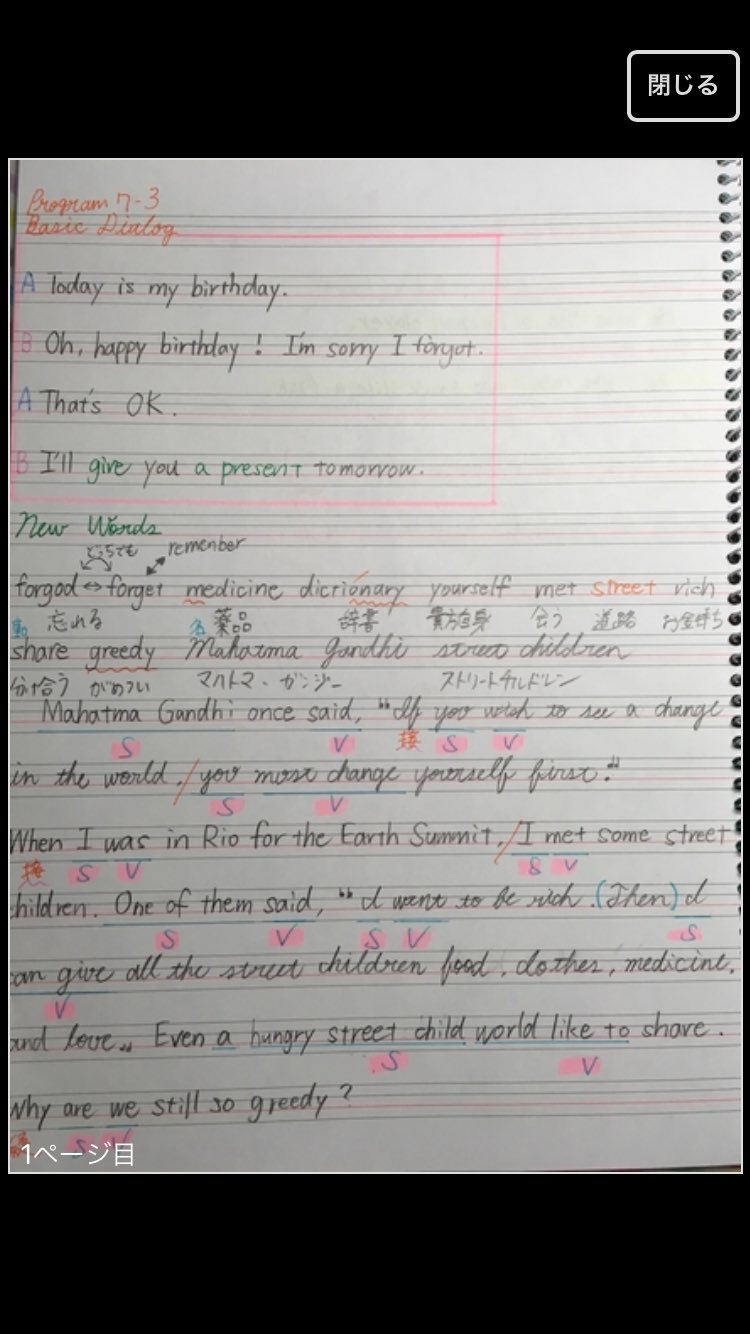 閉じる
Program 7-3
Basic Dialog
A Today is my birthday.
B Oh, happy birthday! I'm sorry I forgot.
A That's OK.
B I'll give you a present tomorrow.
New Words
どっちでも remenber
forgod ⇔ forget medicine dictionary yourself met street rich
動 忘れる 名 薬品 辞書 貴方自身 会う 道路 お金持ち
share greedy Mahatma Gandhi street children
分け合う がめつい マハトマ・ガンジー ストリートチルドレン
Mahatma Gandhi once said, "If you wish to see a change
S V 接 S V
in the world, / you most change yourself first."
S V
When I was in Rio for the Earth Summit, / I met some street
接 S V S V
children. One of them said, "I want to be rich. (Then) I
S V S V S
can give all the street children food, clothes, medicine,
V
and love." Even a hungry street child world like to share.
S V
Why are we still so greedy?
S V
1ページ目